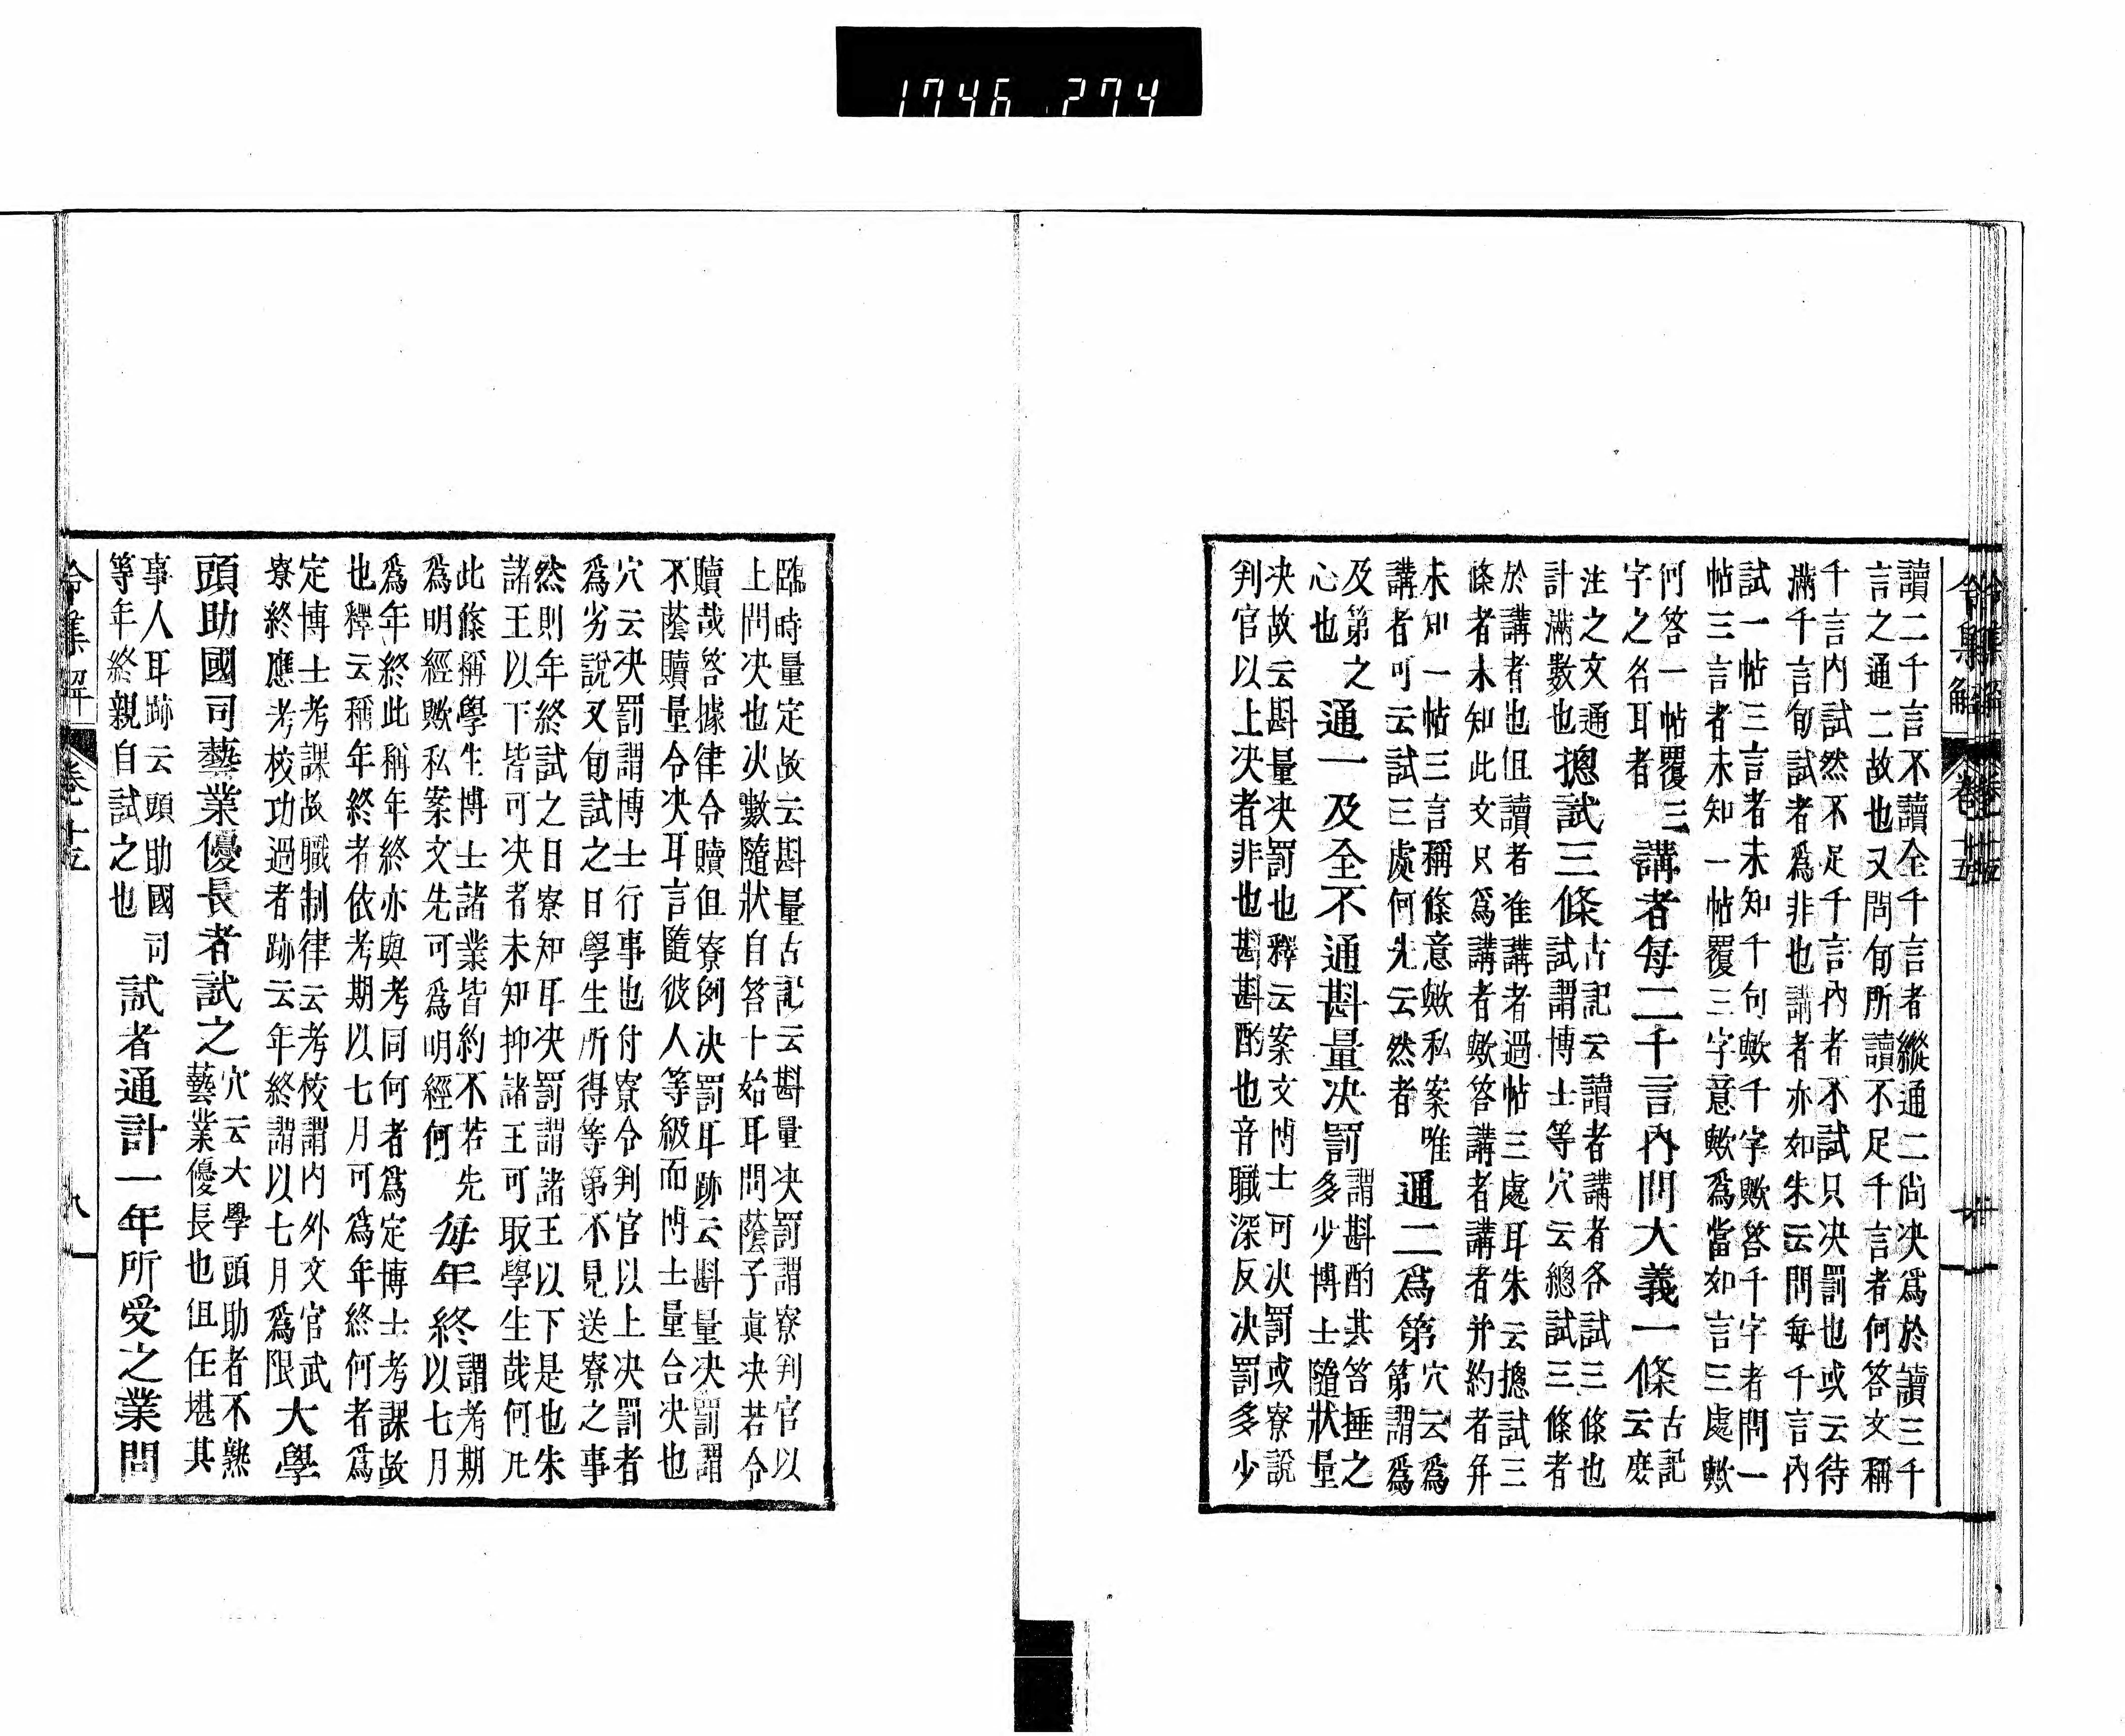 令集解 卷十五
讀二千言不讀全千言者縱通二尚决爲於讀三千
言之通二故也又問旬所讀不足千言者何答文稱
千言内試然不足千言内者不試只决罰也或云待
滿千言旬試者爲非也講者亦如朱云問每千言内
試一帖三言者未知千句歟千字歟答千字者問一
帖三言者未知一帖覆三字意歟爲當如言三處歟
何答一帖覆三
字之名耳者
講者每二千言内問大義一條
古記
云麽
注之文通
計滿數也
摠試三條
古記云讀者講者各試三條也
試謂博士等穴云總試三條者
於講者也但讀者准講者過帖三處耳朱云摠試三
條者未知此文只爲講者歟答講者講者并約者并
未知一帖三言稱條意歟私案唯
講者可云試三處何先云然者
通二爲第
穴云爲
第謂爲
及第之
心也
通一及全不通斟量决罰
謂斟酌其笞捶之
多少博士隨狀量
决故云斟量决罰也釋云案文博士可决罰或寮說
判官以上决者非也斟斟酌也音職深反决罰多少
臨時量定故云斟量古記云斟量决罰謂寮判官以
上問决也决數隨狀自笞十始耳問蔭子眞决若令
贖哉答據律令贖但寮例决罰耳跡云斟量决罰謂
不蔭贖量令决耳言隨彼人等級而博士量合决也
穴云决罰謂博士行事也付寮令判官以上决罰者
爲劣說又旬試之日學生所得等第不見送寮之事
然則年終試之日寮知耳决罰謂諸王以下是也朱
諸王以下皆可决者未知抑諸王可取學生哉何凡
此條稱學生博士諸業皆約不若先
爲明經歟私案文先可爲明經何
每年終
謂考期
以七月
爲年終此稱年終亦與考同何者爲定博士考課故
也釋云稱年終者依考期以七月可爲年終何者爲
定博士考課故職制律云考校謂内外文官武
寮終應考校功過者跡云年終謂以七月爲限
大學
頭助國司藝業優長者試之
穴云大學頭助者不熟
藝業優長也但任堪其
事人耳跡云頭助國司
等年終親自試之也
試者通計一年所受之業問
令集解 卷十五 九
1746 274